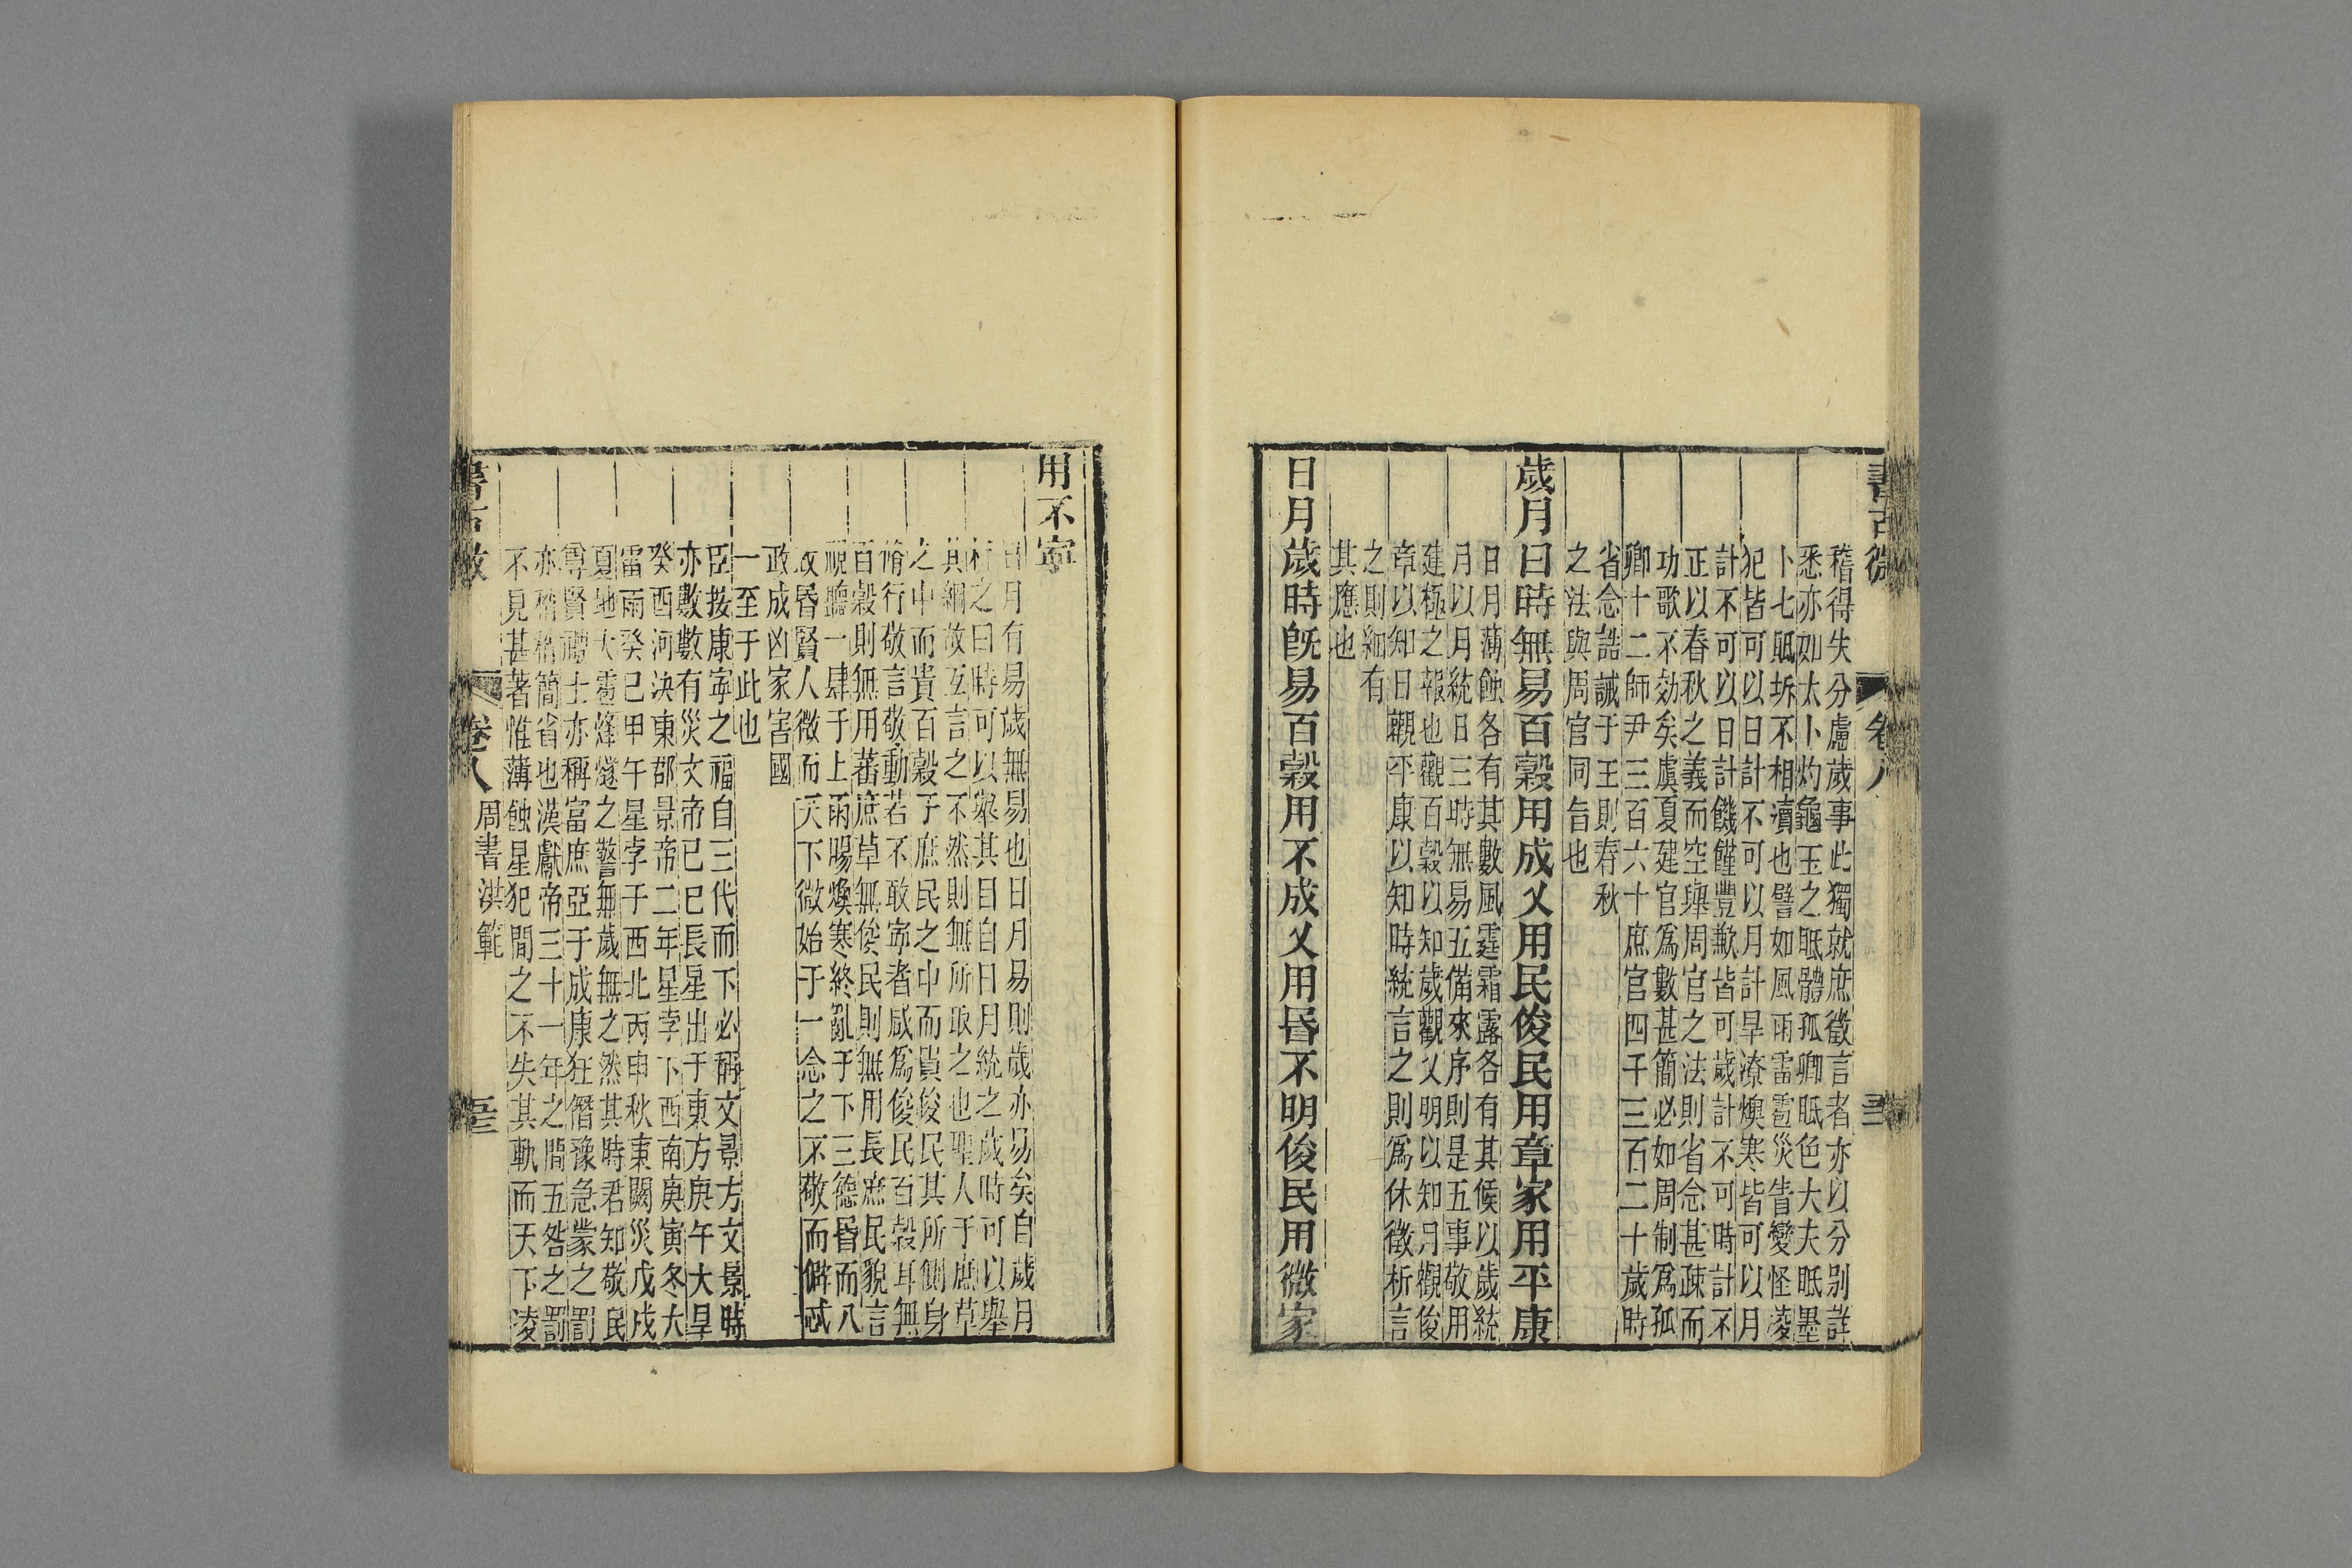 稽得失分慮歲事此獨就庶徵言者亦以分别詳
悉亦如太卜灼龜玉之眂體孤卿眂色大夫眂墨
卜七眂坼不相瀆也譬如風雨雷雹災眚變怪淩
犯皆可以日計不可以月計旱潦燠寒皆可以月
計不可以日計饑饉豐歉皆可歲計不可時計不
正以春秋之義而空舉周官之法則省念甚疎而
功歌不効矣虞夏建官爲數甚簡必如周制爲孤
卿十二師尹三百六十庶官四千三百二十歲時
省念誥誡于王則春秋
之法與周官同旨也
歲月日時無易百穀用成乂用民俊民用章家用平康
日月薄蝕各有其數風霆霜露各有其候以歲統
月以月統日三時無易五備來序則是五事敬用
建極之報也觀百穀以知歲觀乂明以知月觀俊
章以知日觀平康以知時統言之則爲休徵析言
之則細有
其應也
日月歲時旣易百穀用不成乂用昏不明俊民用微家
書古微
卷八
用不寧
日月有易歲無易也日月易則歲亦易矣自歲月
析之曰時可以舉其目自日月統之歲時可以舉
其綱故互言之不然則無所取之也聖人于庶草
之中而貴百穀于庶民之中而貴俊民其所側身
脩行敬言敬動若不敢寧者咸爲俊民百穀耳無
百穀則無用蕃庶草無俊民則無用長庶民貌言
視聽一肆于上雨暘燠寒終亂于下三德昏而八
政昏賢人微而天下微始于一念之不敬而僻忒
政成凶家害國
一至于此也
臣按康寧之福自三代而下必稱文景方文景時
亦數數有災文帝己巳長星出于東方庚午大旱
癸酉河決東郡景帝二年星孛下西南庚寅冬大
雷雨癸巳甲午星孛于西北丙申秋東闕災戊戌
夏地大雹烽燧之警無歲無之然其時君知敬民
尊賢禮士亦稱富庶亞于成康狂僭豫急蒙之罰
亦稽簡省也漢獻帝三十一年之間五咎之罰
不見甚著惟薄蝕星犯間之不失其軌而天下淩
書古微
卷八
周書洪範